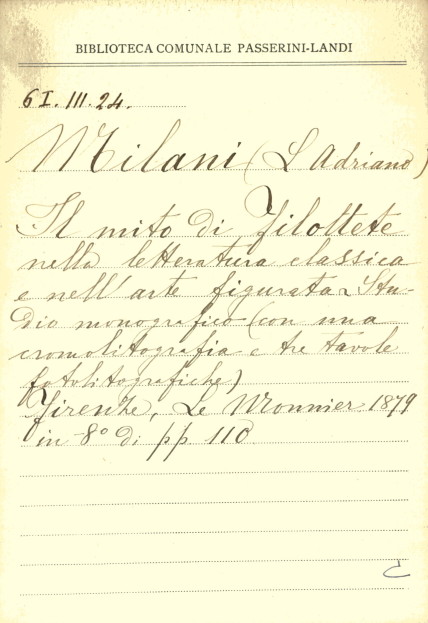 BIBLIOTECA COMUNALE PASSERINI-LANDI
6I.III.24.
Milani (L Adriano)
Il mito di Filottete
nella letteratura classica
e nell'arte figurata - Stu-
dio monografico (con una
cromolitografia e tre tavole
fotolitografiche)
Firenze, Le Monnier 1879
in 8° di pp 110
C